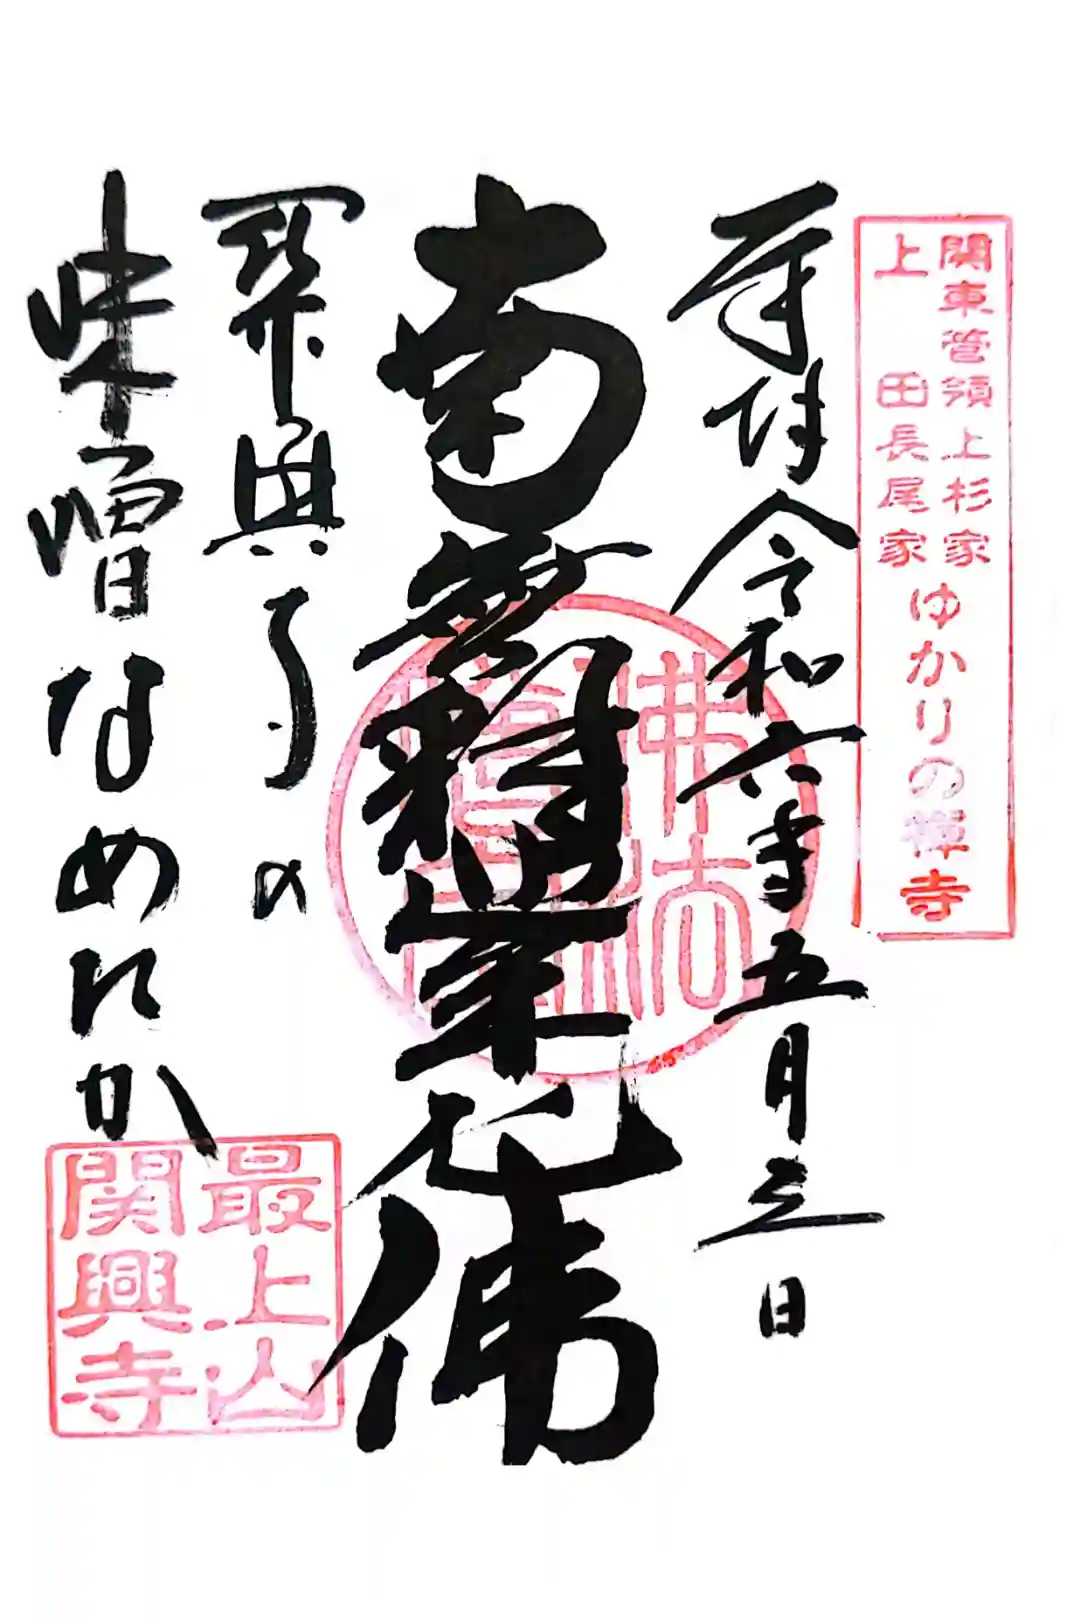 関東管領上杉家
上田長尾家
ゆかりの禅寺
奉拝 令和六年五月三日
南無釋迦牟尼佛
関興寺の
味噌なめたか
佛法僧寶
最上山
関興寺